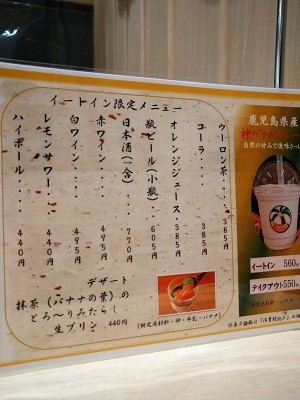 イートイン限定メニュー
ウーロン茶・・・385円
コーラ・・・385円
オレンジジュース・385円
瓶ビール(小瓶)・・605円
日本酒(一合)・・770円
赤ワイン・・・495円
白ワイン・・・495円
レモンサワー・・・440円
ハイボール・・・・440円
デザート
抹茶(バナナの葉)の
とろ〜りみたらし
生プリン 440円
(特定原材料・卵・牛乳・バナナ)
鹿児島県産
神バナナ
自然の甘みで後味さっ
イートイン 560
テイクアウト 550
(特定原材料・